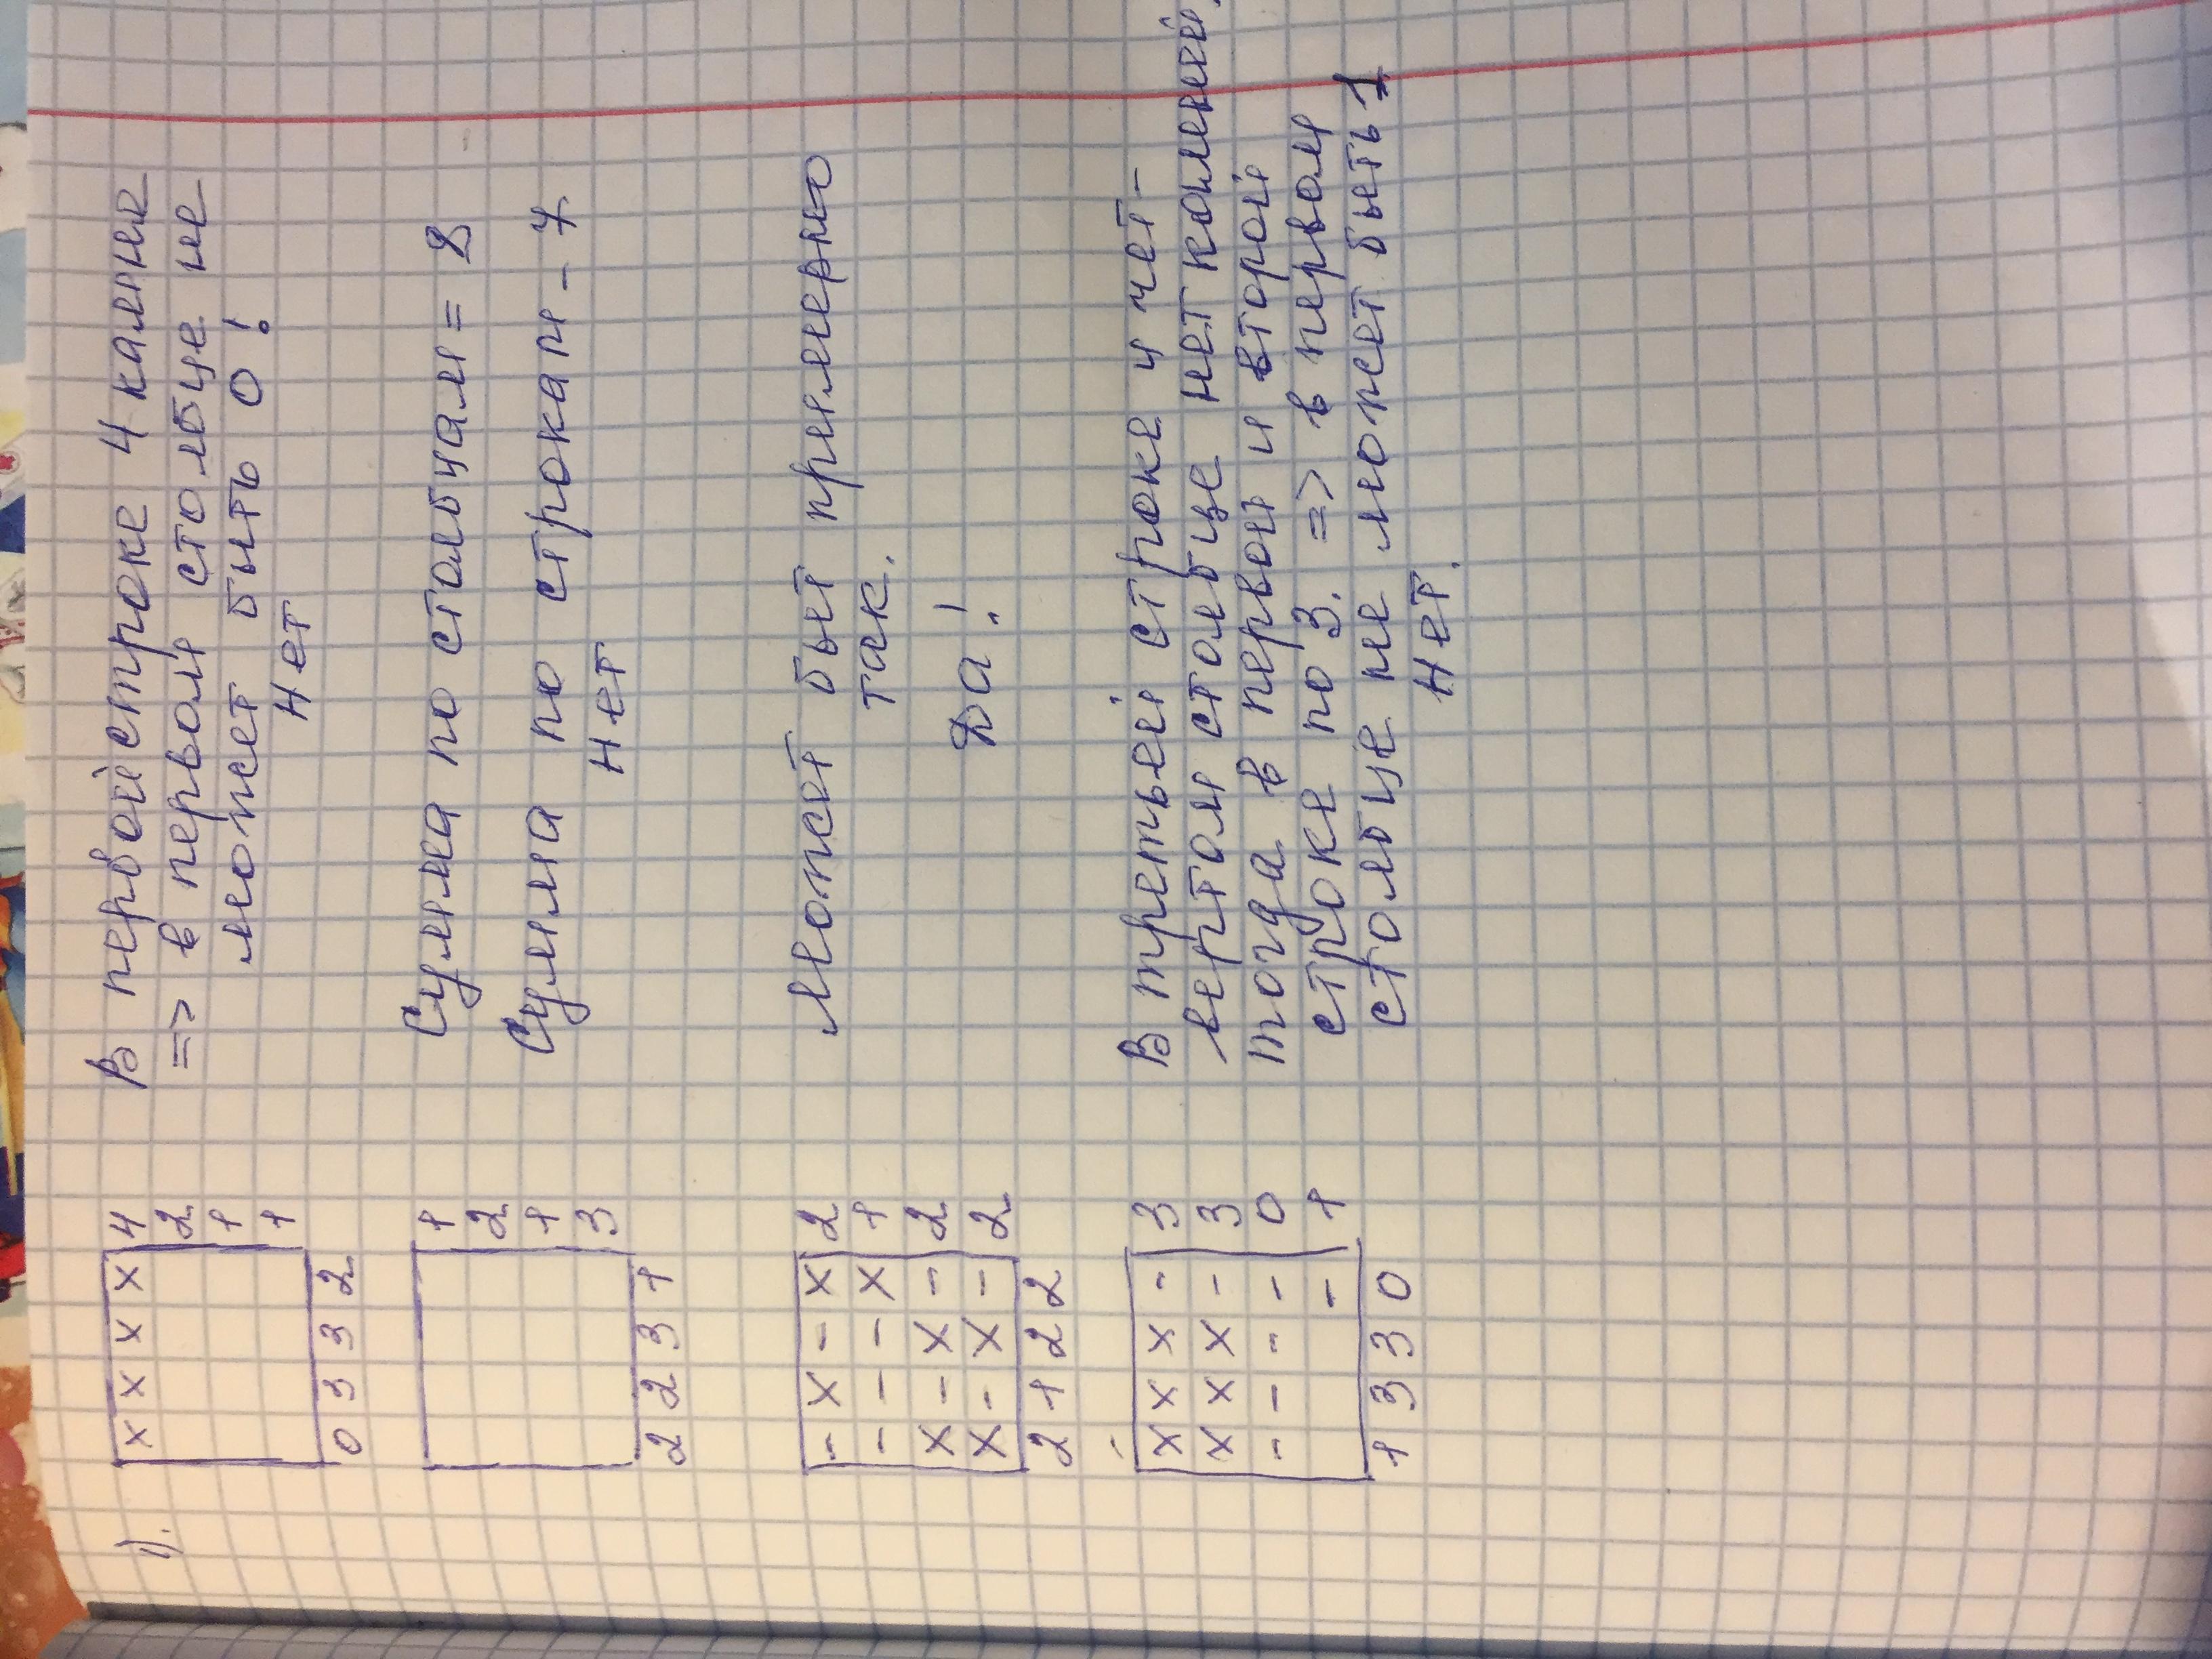 1).
x x x x 4
2
1
1
0 3 3 2
В первой строке 4 камник
=> в первом столбце не
может быть 0!
Нет
1
2
1
3
2 2 3 1
Сумма по столбцам = 8
Сумма по строкам - 7
Нет
- x - x 2
- - - x 1
x - x - 2
x - x - 2
2 1 2 2
Может быт примерно
так.
Да!
x x x - 3
x x x - 3
- - - - 0
- 1
1 3 3 0
В третьей строке и чет-
вертом столбце нет камней,
тогда в первой и второй
строке по 3. => в первом
столбце не может быть 1
Нет.